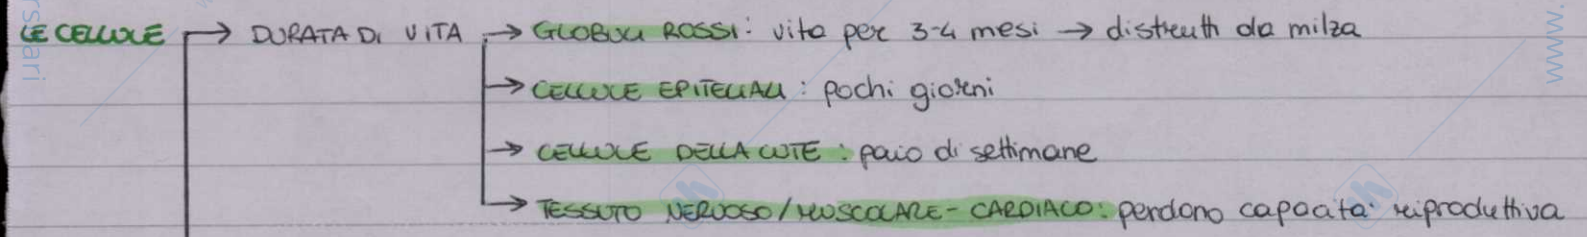 LE CELLULE → DURATA DI VITA → GLOBULI ROSSI: vita per 3-4 mesi → distrutti da milza
→ CELLULE EPITELIALI: pochi giorni
→ CELLULE DELLA CUTE: paio di settimane
→ TESSUTO NERVOSO/MUSCOLARE-CARDIACO: perdono capacità riproduttiva